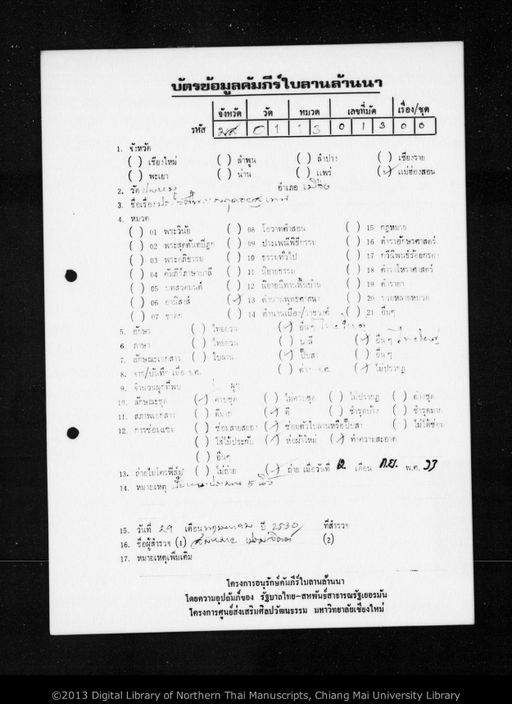 บัตรข้อมูลคัมภีร์ใบลานล้านนา
จังหวัด วัด หมวด เลขที่มัด เรื่อง/ชุด
รหัส มส 01 13 013 00
1. จังหวัด
( ) เชียงใหม่ ( ) ลำพูน ( ) ลำปาง ( ) เชียงราย
( ) พะเยา ( ) น่าน ( ) แพร่ (✓) แม่ฮ่องสอน
2. วัด อำเภอ เมือง
3. ชื่อเรื่อง
4. หมวด
( ) 01 พระวินัย ( ) 08 โอวาทคำสอน ( ) 15 กฎหมาย
( ) 02 พระสุตตันตปิฎก ( ) 09 ประเพณีพิธีกรรม ( ) 16 ตำราโหราศาสตร์
( ) 03 พระอภิธรรม ( ) 10 ธรรมทั่วไป ( ) 17 กวีนิพนธ์ร้อยกรอง
( ) 04 คัมภีร์ภาษาบาลี ( ) 11 นิยายธรรม ( ) 18
( ) 05 บทสวดมนต์ ( ) 12 นิยายนิทานพื้นบ้าน ( ) 19 ตำรายา
( ) 06 อานิสงส์ (✓) 13 ตำนานพุทธศาสนา ( ) 20 รวมหลายหมวด
( ) 07 ชาดก ( ) 14 ตำนานเมือง/ราชวงศ์ ( ) 21 อื่นๆ
5. อักษร ( ) ไทยยวน (✓) อื่นๆ ไทยใหญ่
6. ภาษา ( ) ไทยยวน ( ) บาลี (✓) อื่นๆ ไทยใหญ่
7. ลักษณะเอกสาร ( ) ใบลาน (✓) พับสา ( ) อื่นๆ
8. จาร/บันทึก เมื่อ พ.ศ. ( ) ค่าง จ.ศ. (✓) ไม่ปรากฏ
9. จำนวนผูกที่พบ ผูก
10. ลักษณะชุด (✓) ครบชุด ( ) ไม่ครบชุด ( ) ไม่ปรากฏ ( ) ต่างชุด
11. สภาพเอกสาร ( ) ดีมาก (✓) ดี ( ) ชำรุดบ้าง ( ) ชำรุดมาก
12. การซ่อมแซม ( ) ซ่อมสายสยอง (✓) ซ่อมตัวใบลานหรือพับสา ( ) ไม่ได้ซ่อม
( ) ใส่ไม้ประกับ (✓) ห่อผ้าใหม่ (✓) ทำความสะอาด
( ) อื่นๆ
13. ถ่ายไมโครฟิล์ม ( ) ไม่ถ่าย (✓) ถ่าย เมื่อวันที่ 12 เดือน ก.ย. พ.ศ. 33
14. หมายเหตุ
15. วันที่ 29 เดือน พฤษภาคม ปี 2530 ที่สำรวจ
16. ชื่อผู้สำรวจ (1) (2)
17. หมายเหตุเพิ่มเติม
โครงการอนุรักษ์คัมภีร์ใบลานล้านนา
โดยความอุปถัมภ์ของ รัฐบาลไทย-สหพันธ์สาธารณรัฐเยอรมัน
โครงการศูนย์ส่งเสริมศิลปวัฒนธรรม มหาวิทยาลัยเชียงใหม่
©2013 Digital Library of Northern Thai Manuscripts, Chiang Mai University Library